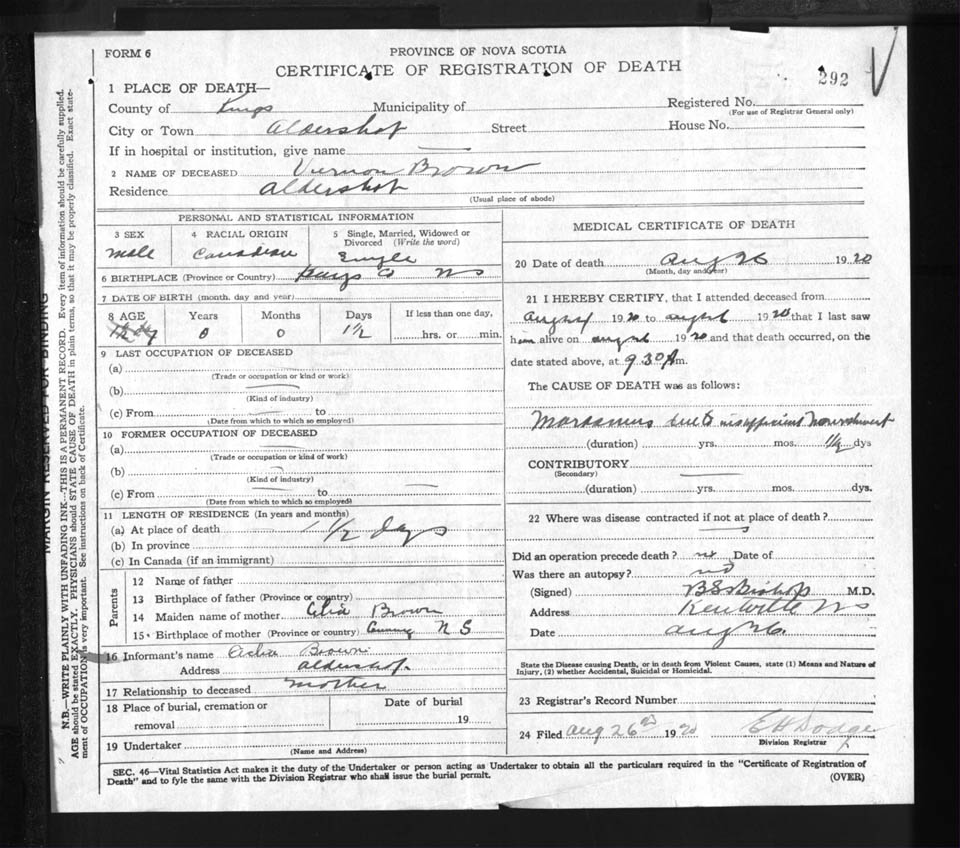 FORM 6
PROVINCE OF NOVA SCOTIA
CERTIFICATE OF REGISTRATION OF DEATH
292
1 PLACE OF DEATH—
County of Kings Municipality of Registered No.
(For use of Registrar General only)
City or Town Aldershot Street House No.
If in hospital or institution, give name
2 NAME OF DECEASED Vernon Brown
Residence Aldershot
(Usual place of abode)
PERSONAL AND STATISTICAL INFORMATION
3 SEX 4 RACIAL ORIGIN 5 Single, Married, Widowed or Divorced (Write the word)
male Canadian Single
6 BIRTHPLACE (Province or Country) Kings Co NS
7 DATE OF BIRTH (month, day and year)
8 AGE Years Months Days If less than one day,
0 0 1½ hrs. or min.
9 LAST OCCUPATION OF DECEASED
(a)
(Trade or occupation or kind or work)
(b)
(Kind of industry)
(c) From to
(Date from which to which so employed)
10 FORMER OCCUPATION OF DECEASED
(a)
(Trade or occupation or kind of work)
(b)
(Kind of industry)
(c) From to
(Date from which to which so employed)
11 LENGTH OF RESIDENCE (In years and months)
(a) At place of death 1½ days
(b) In province
(c) In Canada (if an immigrant)
Parents
12 Name of father
13 Birthplace of father (Province or country)
14 Maiden name of mother Celia Brown
15 Birthplace of mother (Province or country) N S
16 Informant's name Celia Brown
Address Aldershot
17 Relationship to deceased mother
18 Place of burial, cremation or removal Date of burial
19
19 Undertaker
(Name and Address)
MEDICAL CERTIFICATE OF DEATH
20 Date of death Aug 26 1920
(Month, day and year)
21 I HEREBY CERTIFY, that I attended deceased from
1920 to 1920 that I last saw
him alive on 1920 and that death occurred, on the
date stated above, at 9.30 A m.
The CAUSE OF DEATH was as follows:
Marasmus due to insufficient nourishment
(duration) yrs. mos. 1½ dys
CONTRIBUTORY
(Secondary)
(duration) yrs. mos. dys.
22 Where was disease contracted if not at place of death?
Did an operation precede death? no Date of
Was there an autopsy? no
(Signed) B S Bishop M.D.
Address Kentville NS
Date Aug 26.
State the Disease causing Death, or in death from Violent Causes, state (1) Means and Nature of
Injury, (2) whether Accidental, Suicidal or Homicidal.
23 Registrar's Record Number
24 Filed Aug 26 1920 E H Dodge
Division Registrar
SEC. 46—Vital Statistics Act makes it the duty of the Undertaker or person acting as Undertaker to obtain all the particulars required in the "Certificate of Registration of
Death" and to fyle the same with the Division Registrar who shall issue the burial permit.
(OVER)
MARGIN RESERVED FOR BINDING
N.B.—WRITE PLAINLY WITH UNFADING INK—THIS IS A PERMANENT RECORD. Every item of information should be carefully supplied.
AGE should be stated EXACTLY. PHYSICIANS should STATE CAUSE OF DEATH in plain terms, so that it may be properly classified. Exact state-
ment of OCCUPATION is very important. See instructions on back of Certificate.